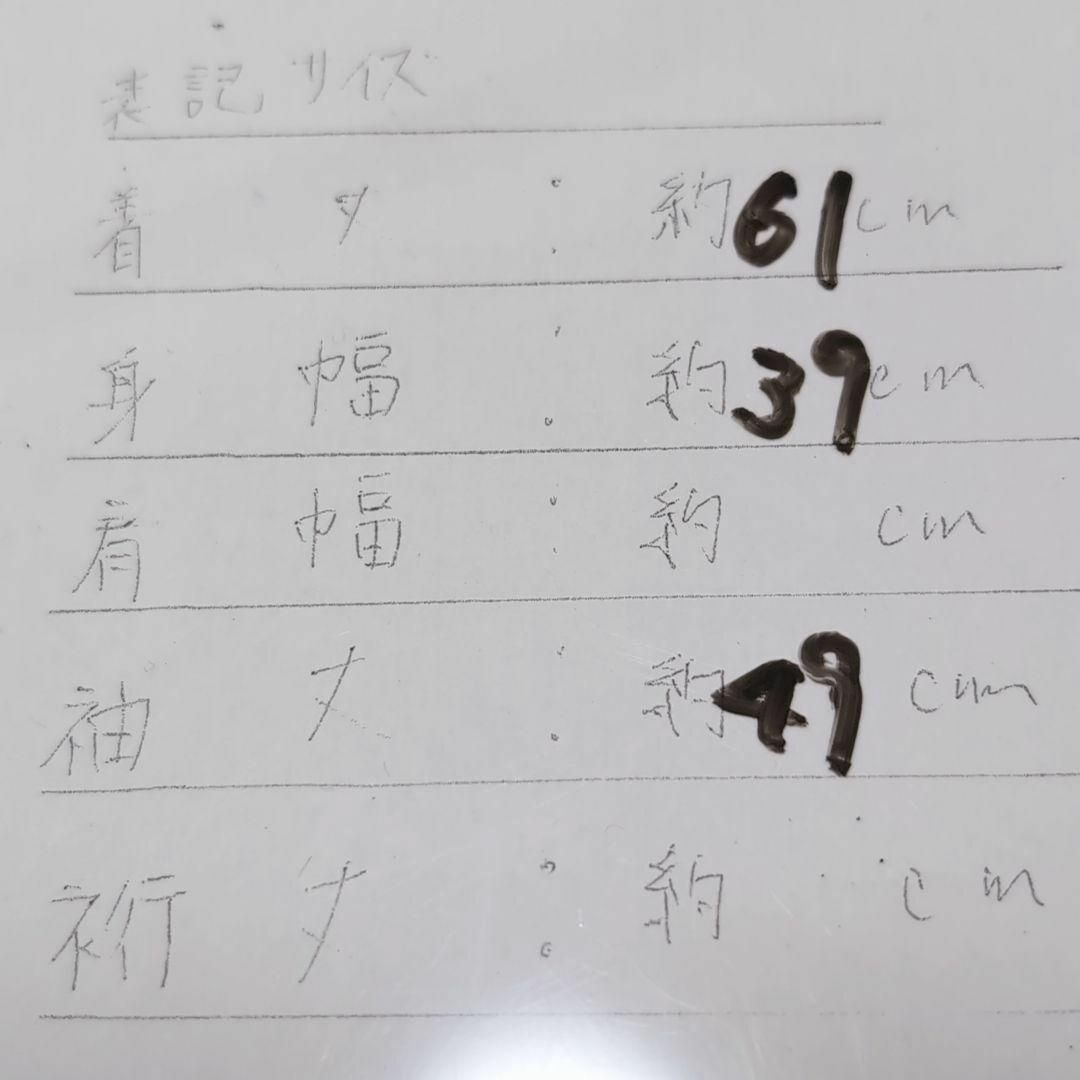 表記サイズ
着丈：約61cm
身幅：約39cm
肩幅：約 cm
袖丈：約49cm
裄丈：約 cm